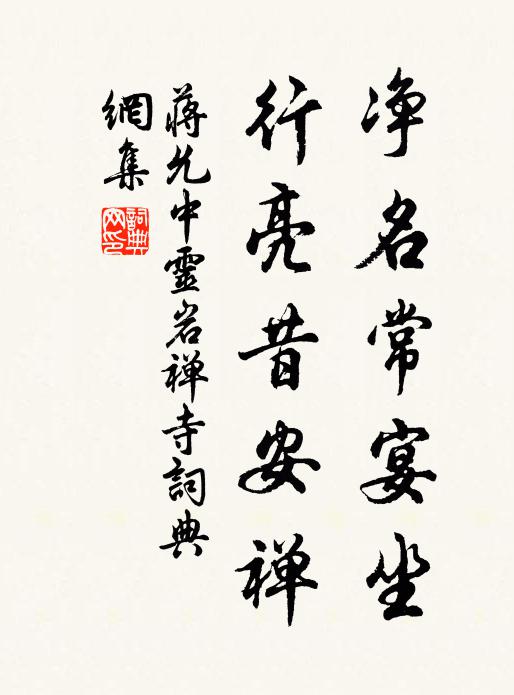 净名常宴坐
行亮昔安禅
蒋允中靈岩禅寺詞典
網集
詞典网印